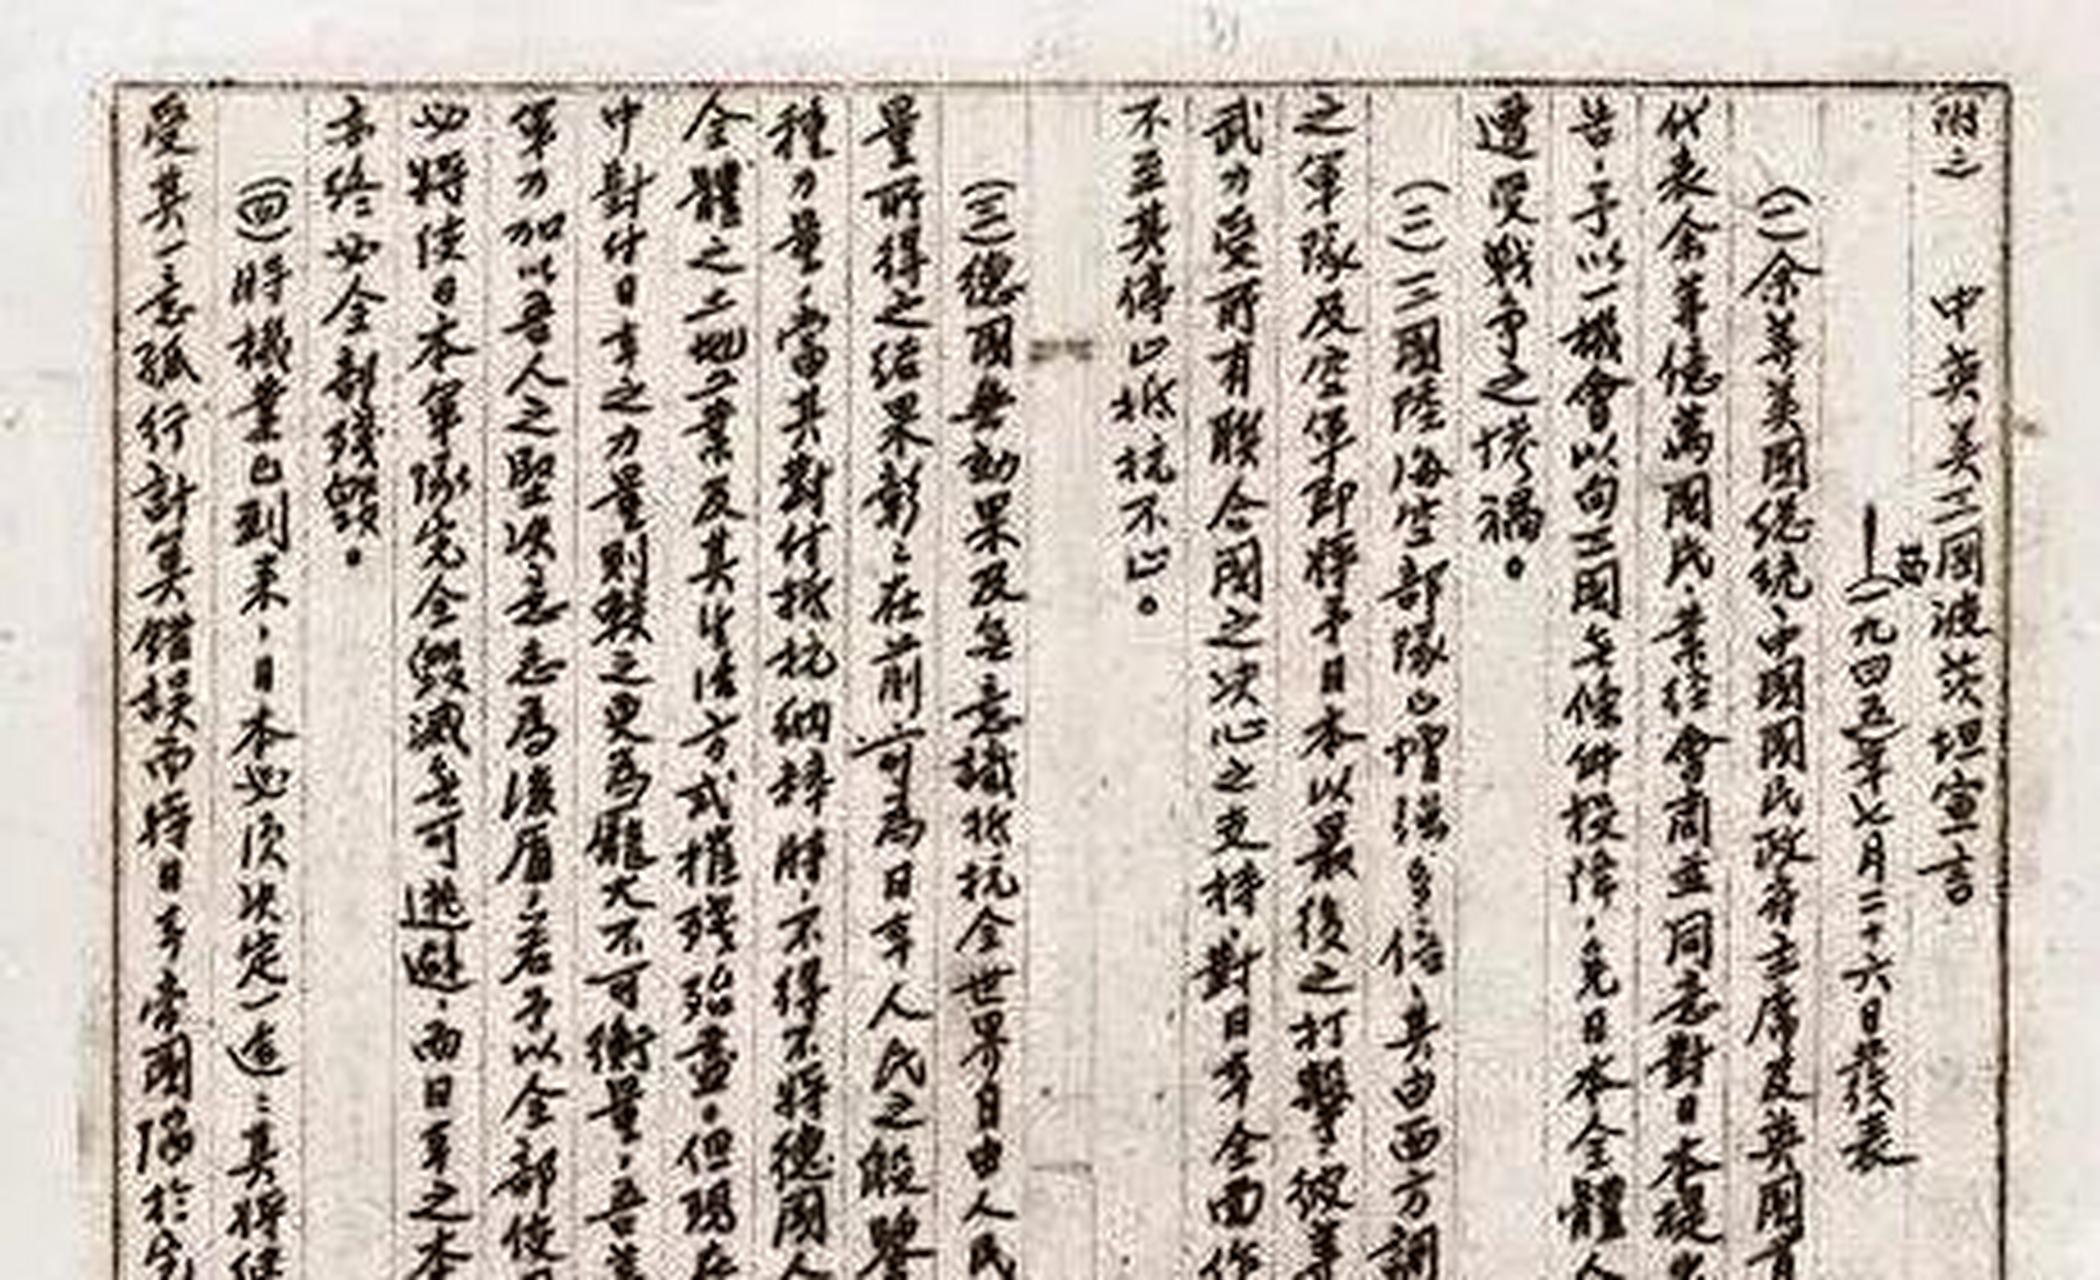 附之 中英美三國波茨坦宣言
(一九四五年七月二十六日發表
(一)余等美國總統、中國國民政府主席及英國首
代表余等億萬國民、業經會商並同意對日本提出
告、予以一機會以向三國無條件投降、免日本全體人
遭受戰争之慘禍。
(二)三國陸海空部隊已增强多倍、其由西方調
之軍隊及空軍即將予日本以最後之打擊、彼等
武力受所有聯合國之决心之支持、對日本全面作
不至其停止抵抗不止。
(三)德國無効果及無意識抵抗全世界自由人民
量所得之结果彰々在前、可為日本人民之殷鑒
種力量、當其對付抵抗納粹時、不得不將德國人
全體之土地工業及其生活方式摧殘殆盡。但現在
中對付日本之力量則較之更為龐大不可衡量、吾等
軍力加以吾人之堅决意志為後盾、若予以全部使用
必將使日本軍隊完全毁滅無可逃避、而日本之本
亦终必全部殘毁。
(四)時機業已到来、日本必須决定一途：其將继
受其一意孤行計算錯誤而將日本帝國陷於完